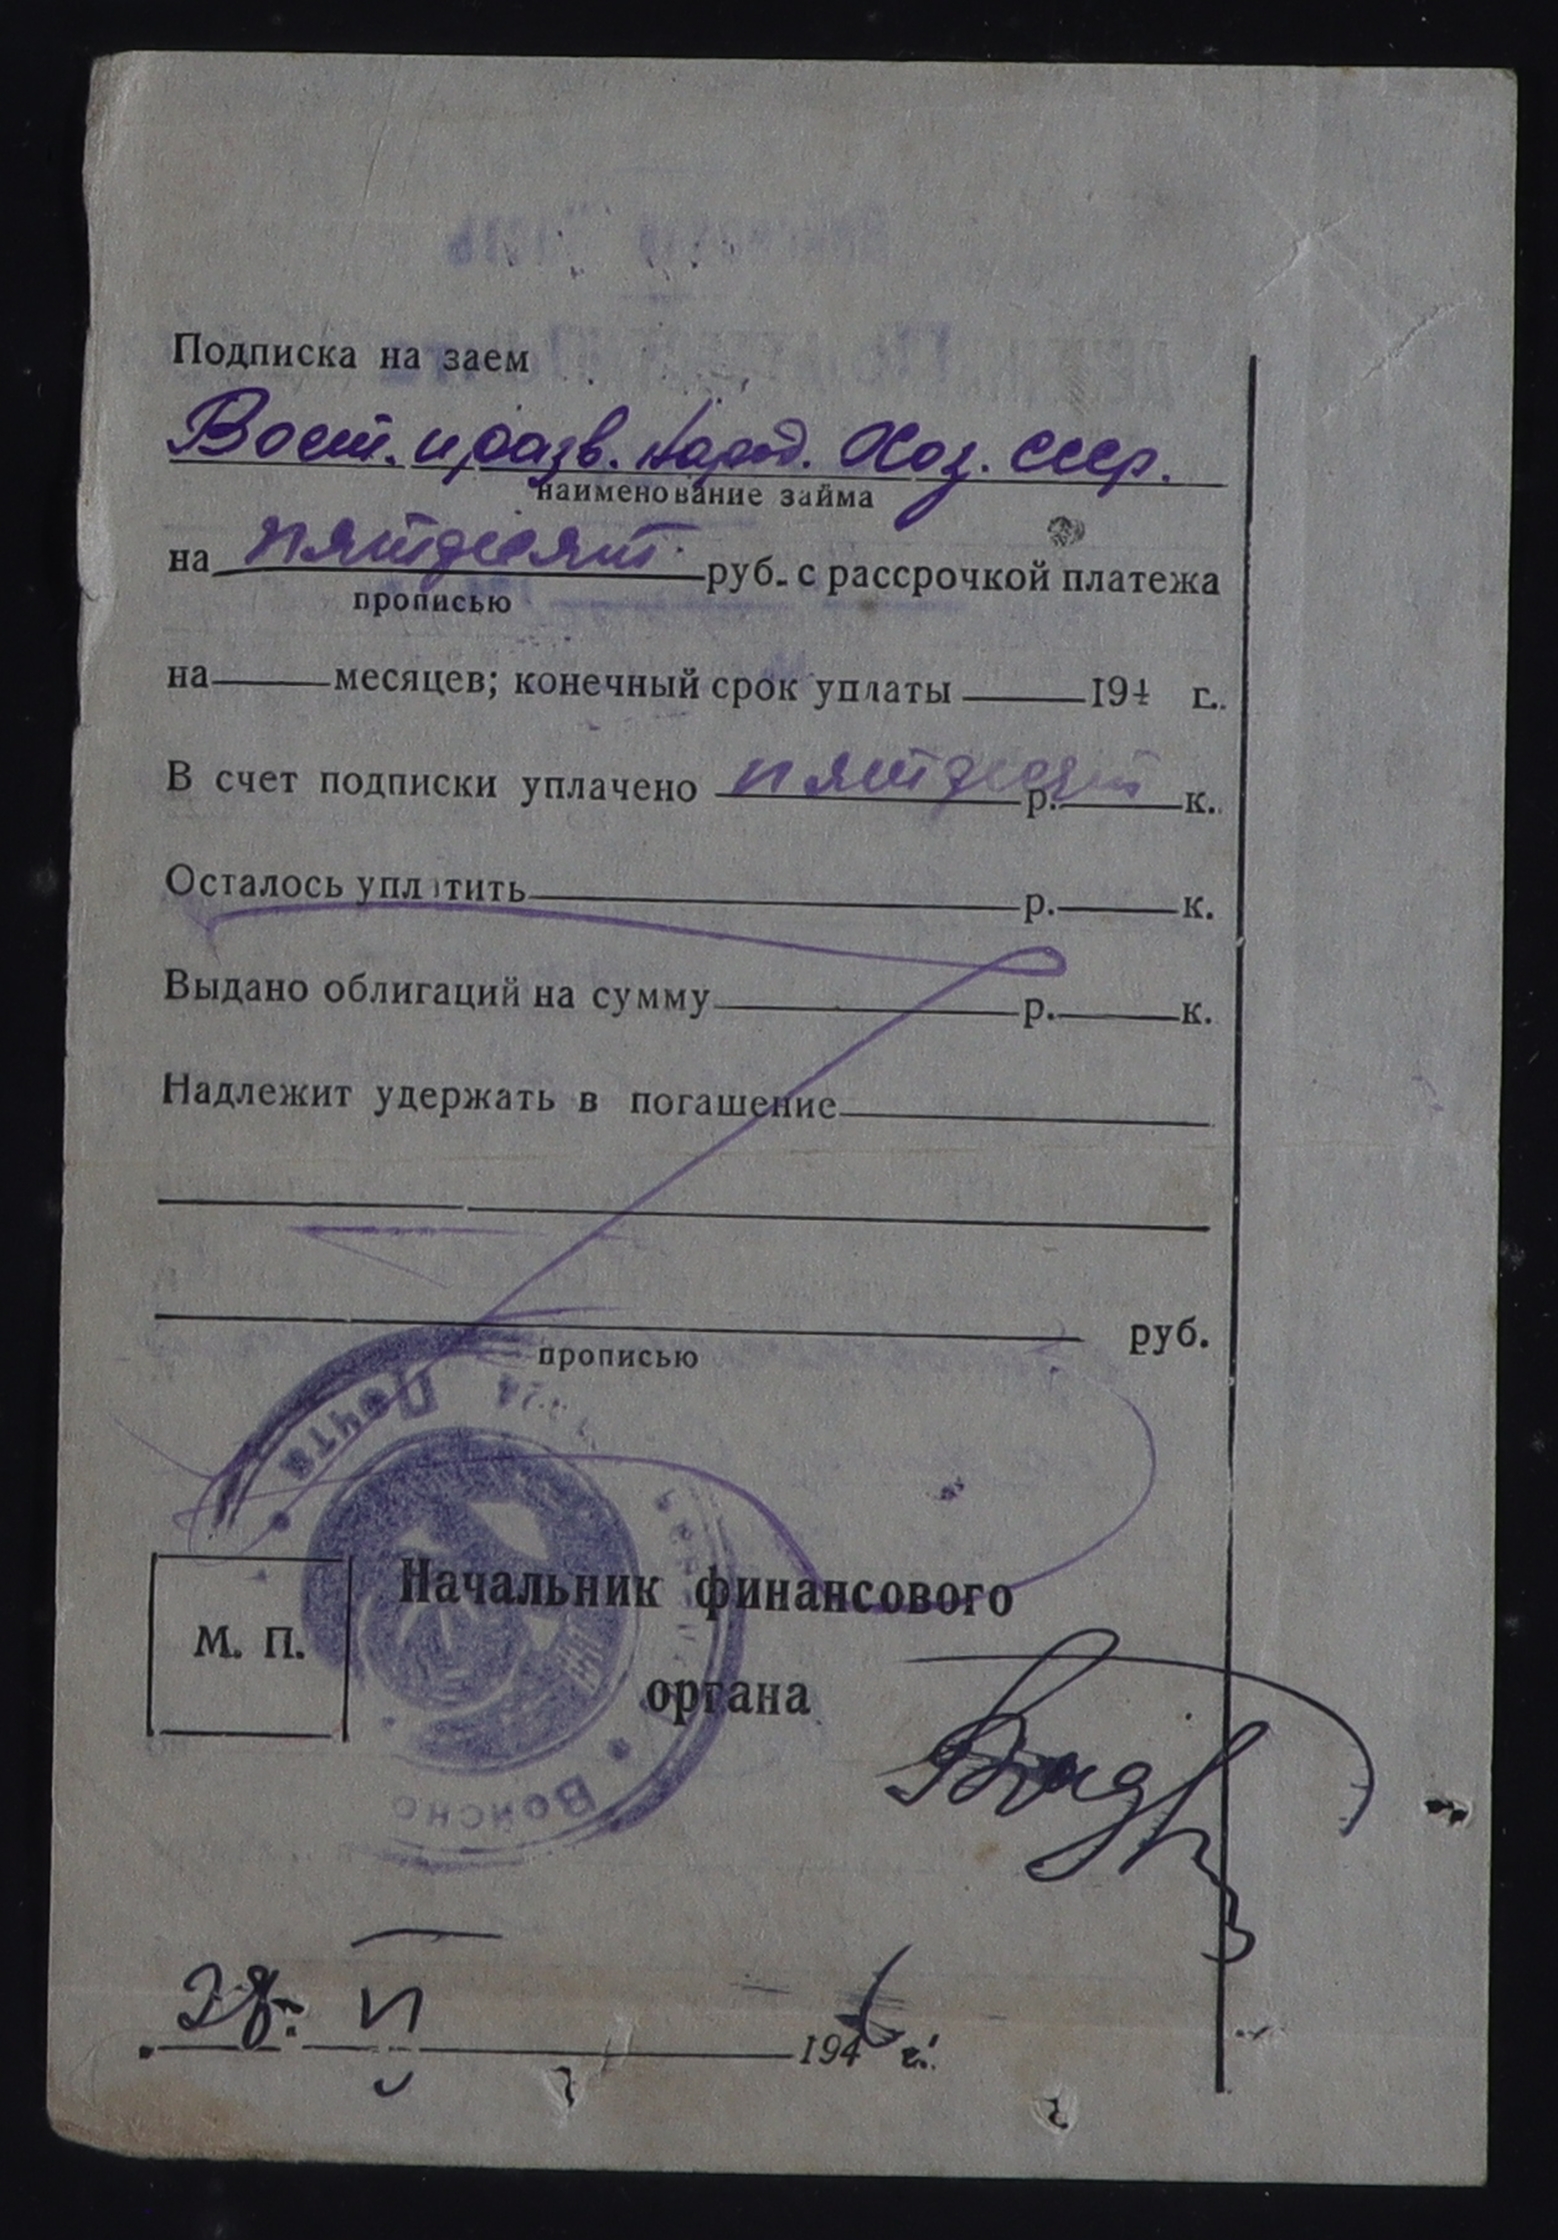 Подписка на заем
Вост. и разв. народ. Хоз. СССР.
наименование займа
на пятдесят руб. с рассрочкой платежа
прописью
на месяцев; конечный срок уплаты 194 г.
В счет подписки уплачено пятдесят р. к.
Осталось уплатить р. к.
Выдано облигаций на сумму р. к.
Надлежит удержать в погашение
руб.
прописью
Почта
Начальник финансового
М. П.
органа
Войско
28. VI 1946 г.